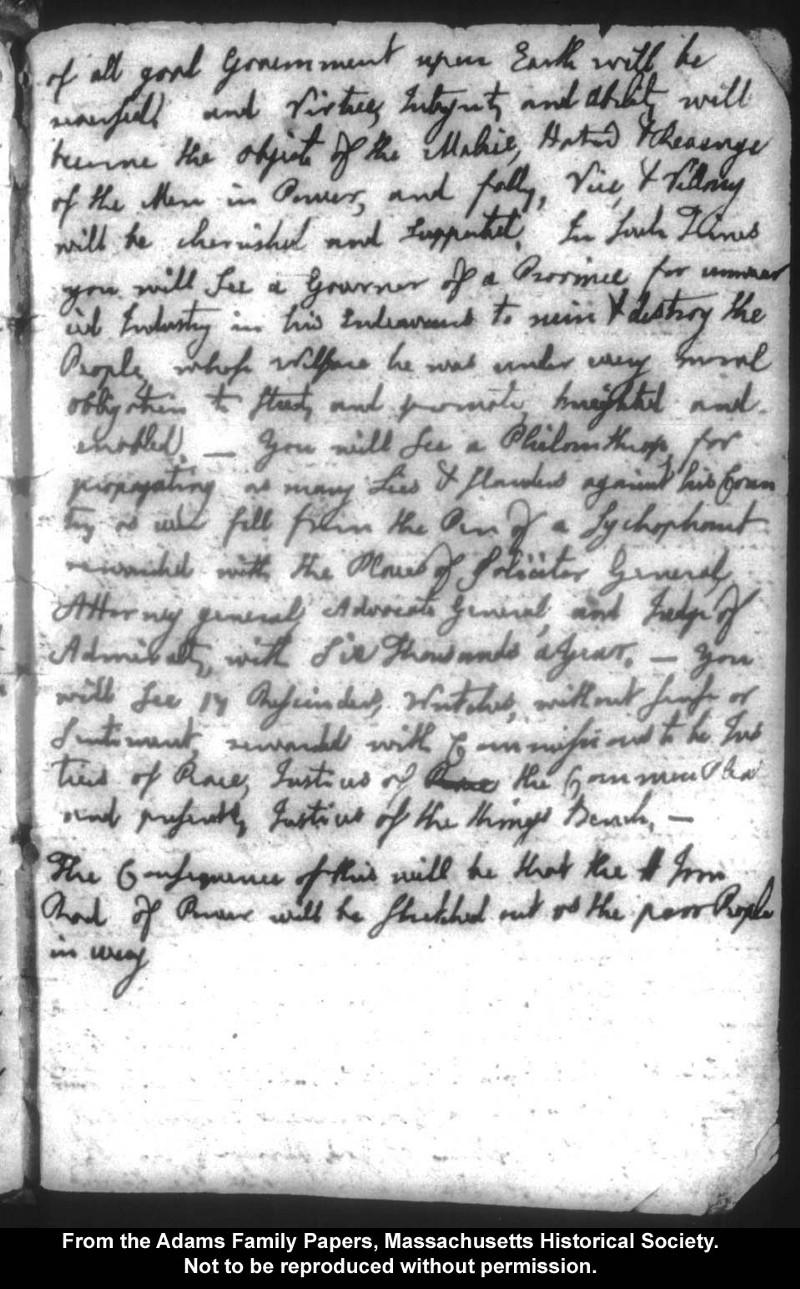 of all good Government upon Earth will be
reversed, and Virtue, Integrity and Ability will
become the objects of the Malice, Hatred & Revenge
of the Men in Power, and folly, Vice, & Villany
will be cherished and supported. In such Times
you will see a Governor of a Province, for unwear
ied Industry in his Endeavours to ruin & destroy the
People, whose Welfare he was under every moral
obligation to study and promote, knighted and
ennobled. — You will see a Philanthrop, for
propagating as many Lies & slanders against his Coun
try as ever fell from the Pen of a Sychophant
rewarded with the Places of Solicitor General,
Attorney general, Advocate General, and Judge of
Admiralty, with Six Thousands a Year. — You
will see 17 Rescinders, Wretches, without sense or
Sentiment, rewarded with Commissions to be Jus
tices of Peace, Justices of the Common Pleas
and presently Justices of the Kings Bench. —
The Consequence of this will be that the Iron
Rod of Power will be stretched out vs the poor People
in every
From the Adams Family Papers, Massachusetts Historical Society.
Not to be reproduced without permission.